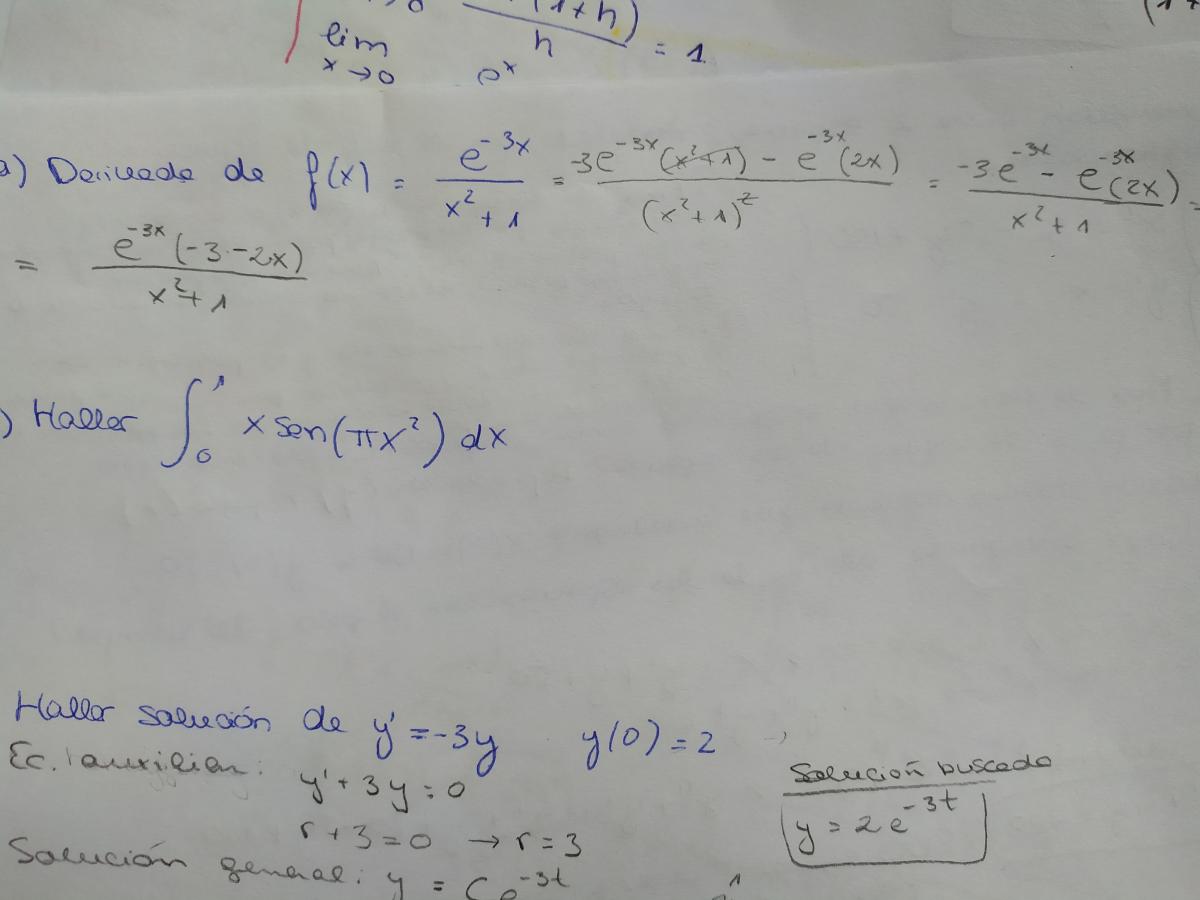 (1+h)
lim h = 1
x→0 e^x
a) Derivada de f(x) = e^{-3x} / (x²+1) = -3e^{-3x}(x²+1) - e^{-3x}(2x) / (x²+1)² = -3e^{-3x} - e^{-3x}(2x) / (x²+1) =
= e^{-3x}(-3-2x) / (x²+1)
) Hallar ∫₀¹ x sen(πx²) dx
Hallar solución de y' = -3y y(0) = 2
Ec. auxiliar:
y' + 3y = 0
Solución buscada
y = 2e^{-3t}
r + 3 = 0 → r = 3
Solución general: y = Ce^{-3t}